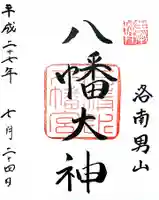 洛南男山
八幡大神
平成二十七年 七月二十四日